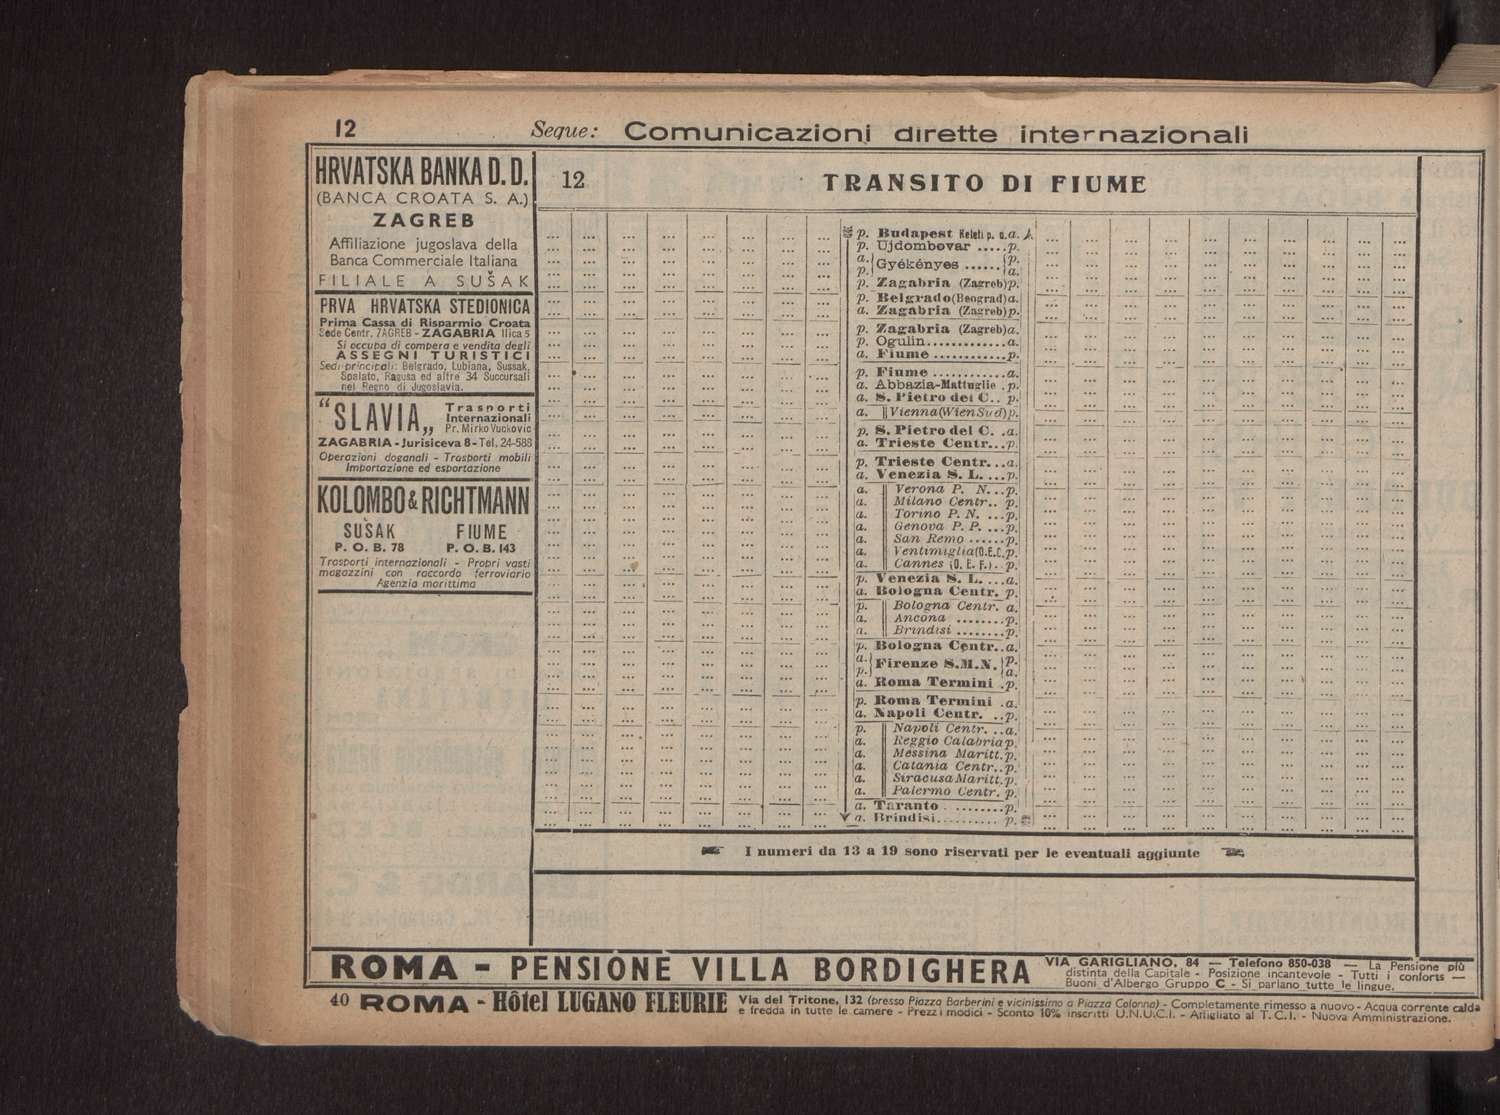 12
Segue: Comunicazioni dirette internazionali
HRVATSKA BANKA D. D.
(BANCA CROATA S. A.)
ZAGREB
Affiliazione jugoslava della
Banca Commerciale Italiana
FILIALE A SUŠAK
PRVA HRVATSKA STEDIONICA
Prima Cassa di Risparmio Croata
Sede Centr. ZAGREB - ZAGABRIA Ilica 5
Si occupa di compera e vendita degli
ASSEGNI TURISTICI
Sedi principali: Belgrado, Lubiana, Sussak,
Spalato, Ragusa ed altre 34 Succursali
nel Regno di Jugoslavia.
"SLAVIA„
Trasporti
Internazionali
Pr. Mirko Vuckovic
ZAGABRIA - Jurisiceva 8 - Tel. 24-588
Operazioni doganali - Trasporti mobili
Importazione ed esportazione
KOLOMBO & RICHTMANN
SUŠAK FIUME
P. O. B. 78 P. O. B. 143
Trasporti internazionali - Propri vasti
magazzini con raccordo ferroviario
Agenzia marittima
12 TRANSITO DI FIUME
p. Budapest Keleti p. u. a.
p. Ujdombovar ..... p.
a. p. Gyékényes ...... p. a.
p. Zagabria (Zagreb) p.
p. Belgrado (Beograd) a.
a. Zagabria (Zagreb) p.
p. Zagabria (Zagreb) a.
p. Ogulin............ a.
a. Fiume ............ p.
p. Fiume ............ a.
a. Abbazia-Mattuglie . p.
a. S. Pietro del C.. p.
a. Vienna (Wien Sud) p.
p. S. Pietro del C. . a.
a. Trieste Centr... p.
p. Trieste Centr. .. a.
a. Venezia S. L. ... p.
a. Verona P. N. .. p.
a. Milano Centr.. p.
a. Torino P. N. ... p.
a. Genova P. P. ... p.
a. San Remo ...... p.
a. Ventimiglia (O.E.C. p.
a. Cannes (O. E. F.) . p.
p. Venezia S. L. ... a.
a. Bologna Centr. p.
p. Bologna Centr. a.
a. Ancona ........ p.
a. Brindisi ........ p.
p. Bologna Centr.. a.
a. p. Firenze S.M.N. p. a.
a. Roma Termini . p.
p. Roma Termini . a.
a. Napoli Centr. .. p.
p. Napoli Centr. .. a.
a. Reggio Calabria p.
a. Messina Maritt. p.
a. Catania Centr.. p.
a. Siracusa Maritt. p.
a. Palermo Centr. p.
a. Taranto ......... p.
a. Brindisi.......... p.
I numeri da 13 a 19 sono riservati per le eventuali aggiunte
ROMA - PENSIONE VILLA BORDIGHERA
VIA GARIGLIANO, 84 — Telefono 850-038 — La Pensione più
distinta della Capitale - Posizione incantevole - Tutti i conforts —
Buoni d'Albergo Gruppo C - Si parlano tutte le lingue.
40 ROMA - Hôtel LUGANO FLEURIE
Via del Tritone, 132 (presso Piazza Barberini e vicinissimo a Piazza Colonna) - Completamente rimesso a nuovo - Acqua corrente calda
e fredda in tutte le camere - Prezzi modici - Sconto 10% inscritti U.N.U.C.I. - Affigliato al T. C. I. - Nuova Amministrazione.